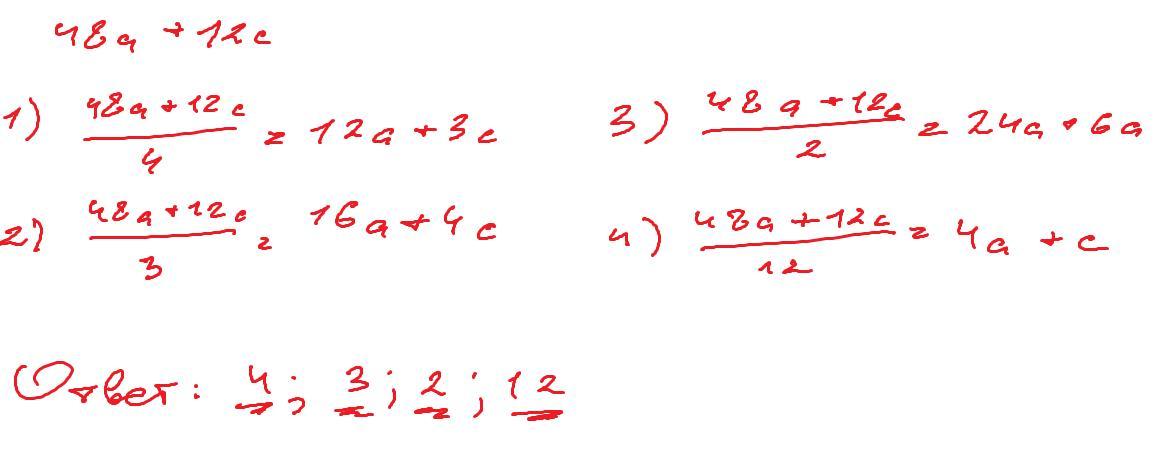 48a + 12c
1) (48a + 12c)/4 = 12a + 3c
2) (48a + 12c)/3 = 16a + 4c
3) (48a + 12c)/2 = 24a + 6a
4) (48a + 12c)/12 = 4a + c
Ответ: 4; 3; 2; 12